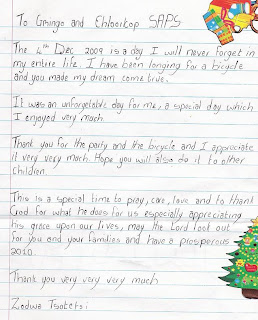 To Gringo and Ehlberkop SAPS
The 4th Dec 2009 is a day I will never forget in
my entire life. I have been longing for a bicycle
and you made my dream come true.
It was an unforgetable day for me, a special day which
I enjoyed very much.
Thank you for the party and the bicycle and I appreciate
it very very much. Hope you will also do it to other
children.
This is a special time to pray, care, love and to thank
God for what he does for us especially appreciating
his grace upon our lives, may the Lord look out
for you and your families and have a prosperous
2010.
Thank you very very very much
Zodwa Tsotetsi